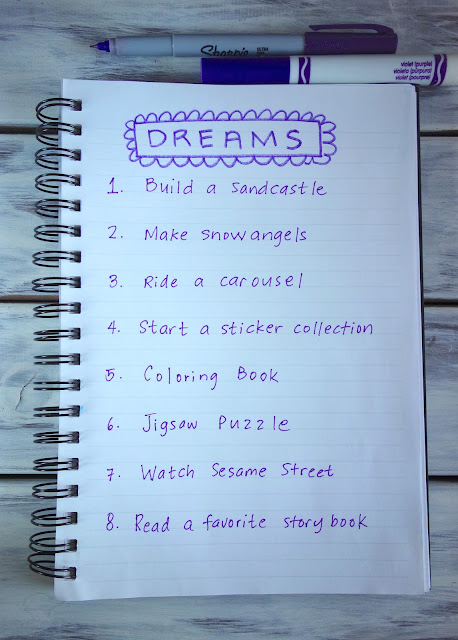 Sharpie
violet (purple)
violeta (púrpura)
violet (pourpre)
DREAMS
1. Build a sandcastle
2. Make snow angels
3. Ride a carousel
4. Start a sticker collection
5. Coloring Book
6. Jigsaw Puzzle
7. Watch Sesame Street
8. Read a favorite storybook